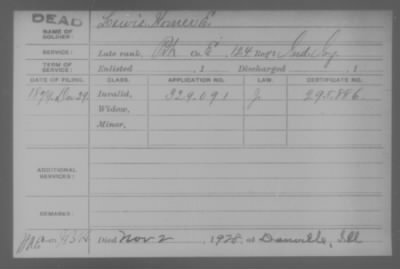 DEAD
NAME OF SOLDIER: Lewis Homer E.
SERVICE: Late rank, Pvt Co. E, 124 Reg't Ind. Inf.
TERM OF SERVICE: Enlisted , 1 Discharged , 1
DATE OF FILING. CLASS. APPLICATION NO. LAW. CERTIFICATE NO.
1879 Dec 29. Invalid, 329.091 J. 295.886
Widow,
Minor,
ADDITIONAL SERVICES:
REMARKS:
Died Nov 2, 1928 at Danville, Ill